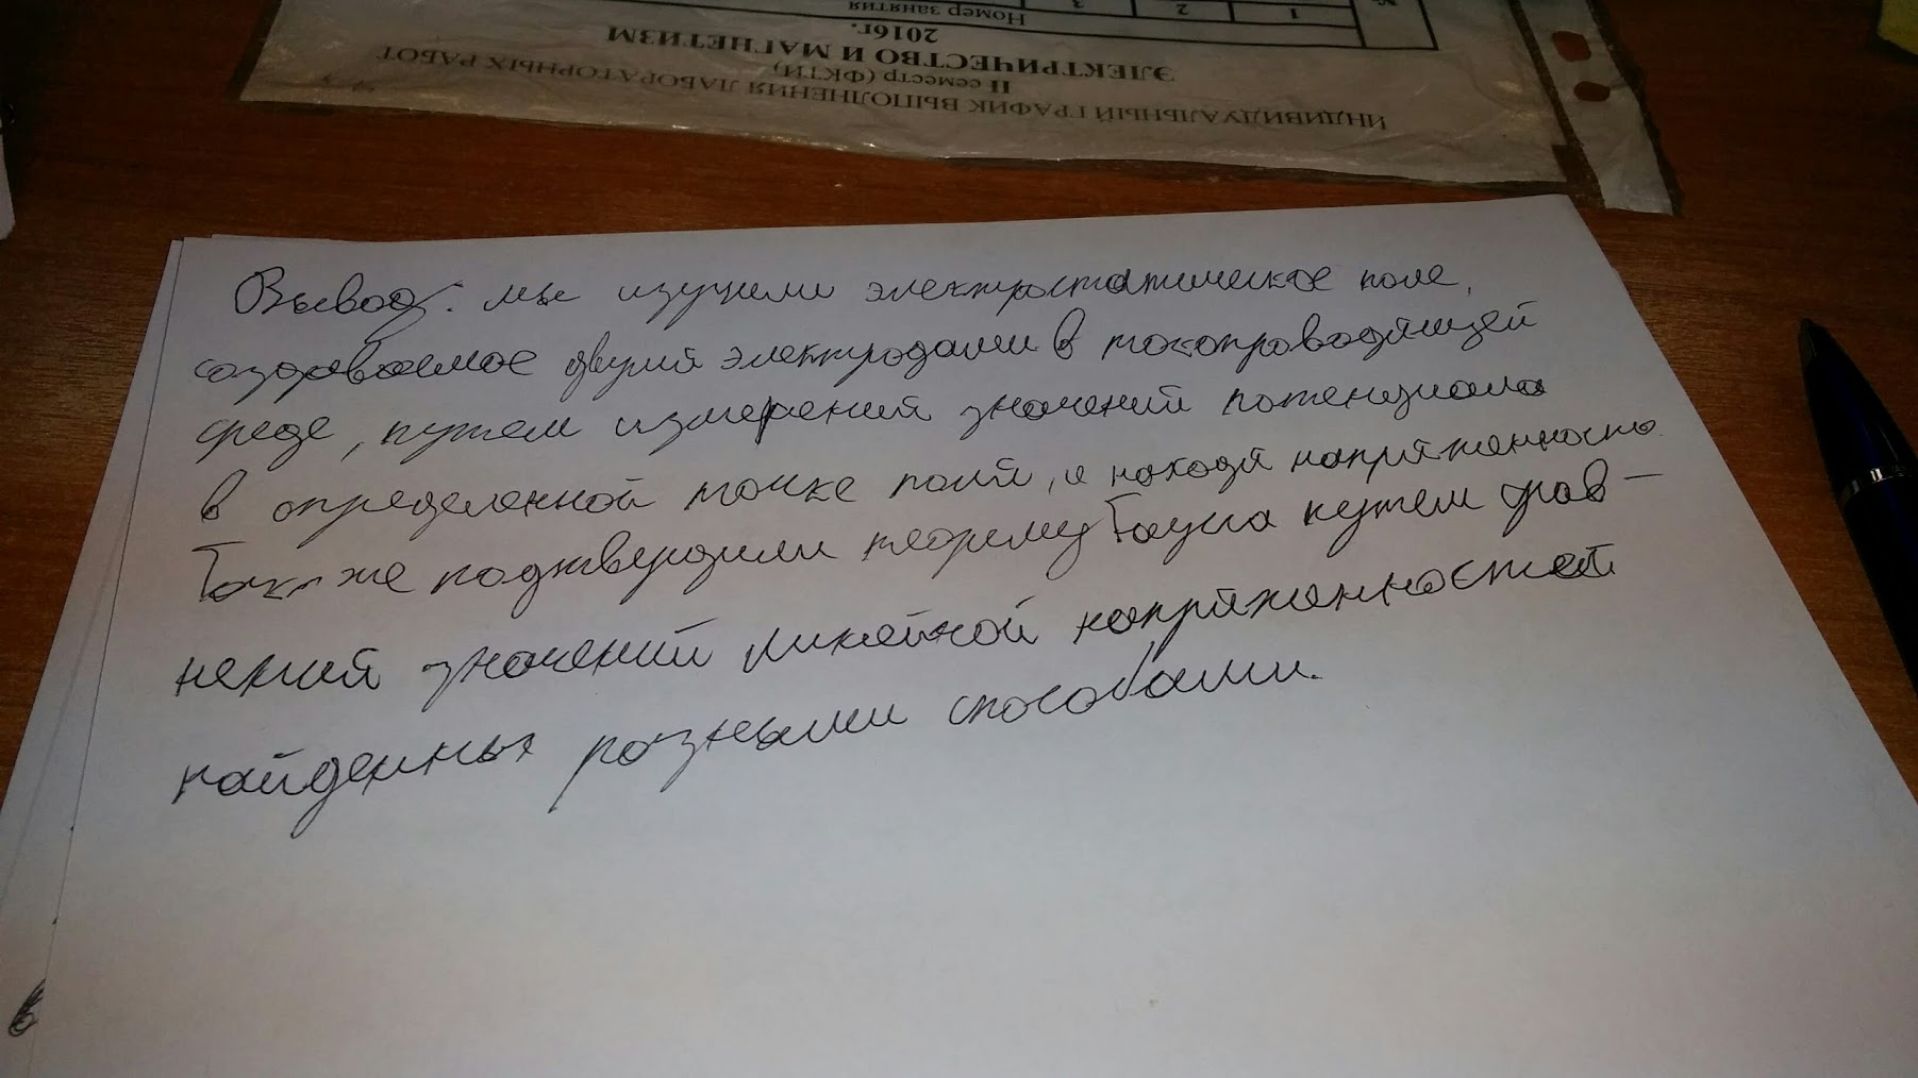 ИНДИВИДУАЛЬНЫЙ ГРАФИК ВЫПОЛНЕНИЯ ЛАБОРАТОРНЫХ РАБОТ
II семестр (ФКТИ)
ЭЛЕКТРИЧЕСТВО И МАГНЕТИЗМ
2016г.
Номер занятия
1 2 3
Вывод: мы изучили электростатическое поле,
создаваемое двумя электродами в токопроводящей
среде, путем измерения значений потенциала
в определенной точке поля, и находя напряженность.
Так же подтвердили теорему Гаусса путем срав-
нения значений линейной напряженностей
найденных разными способами.